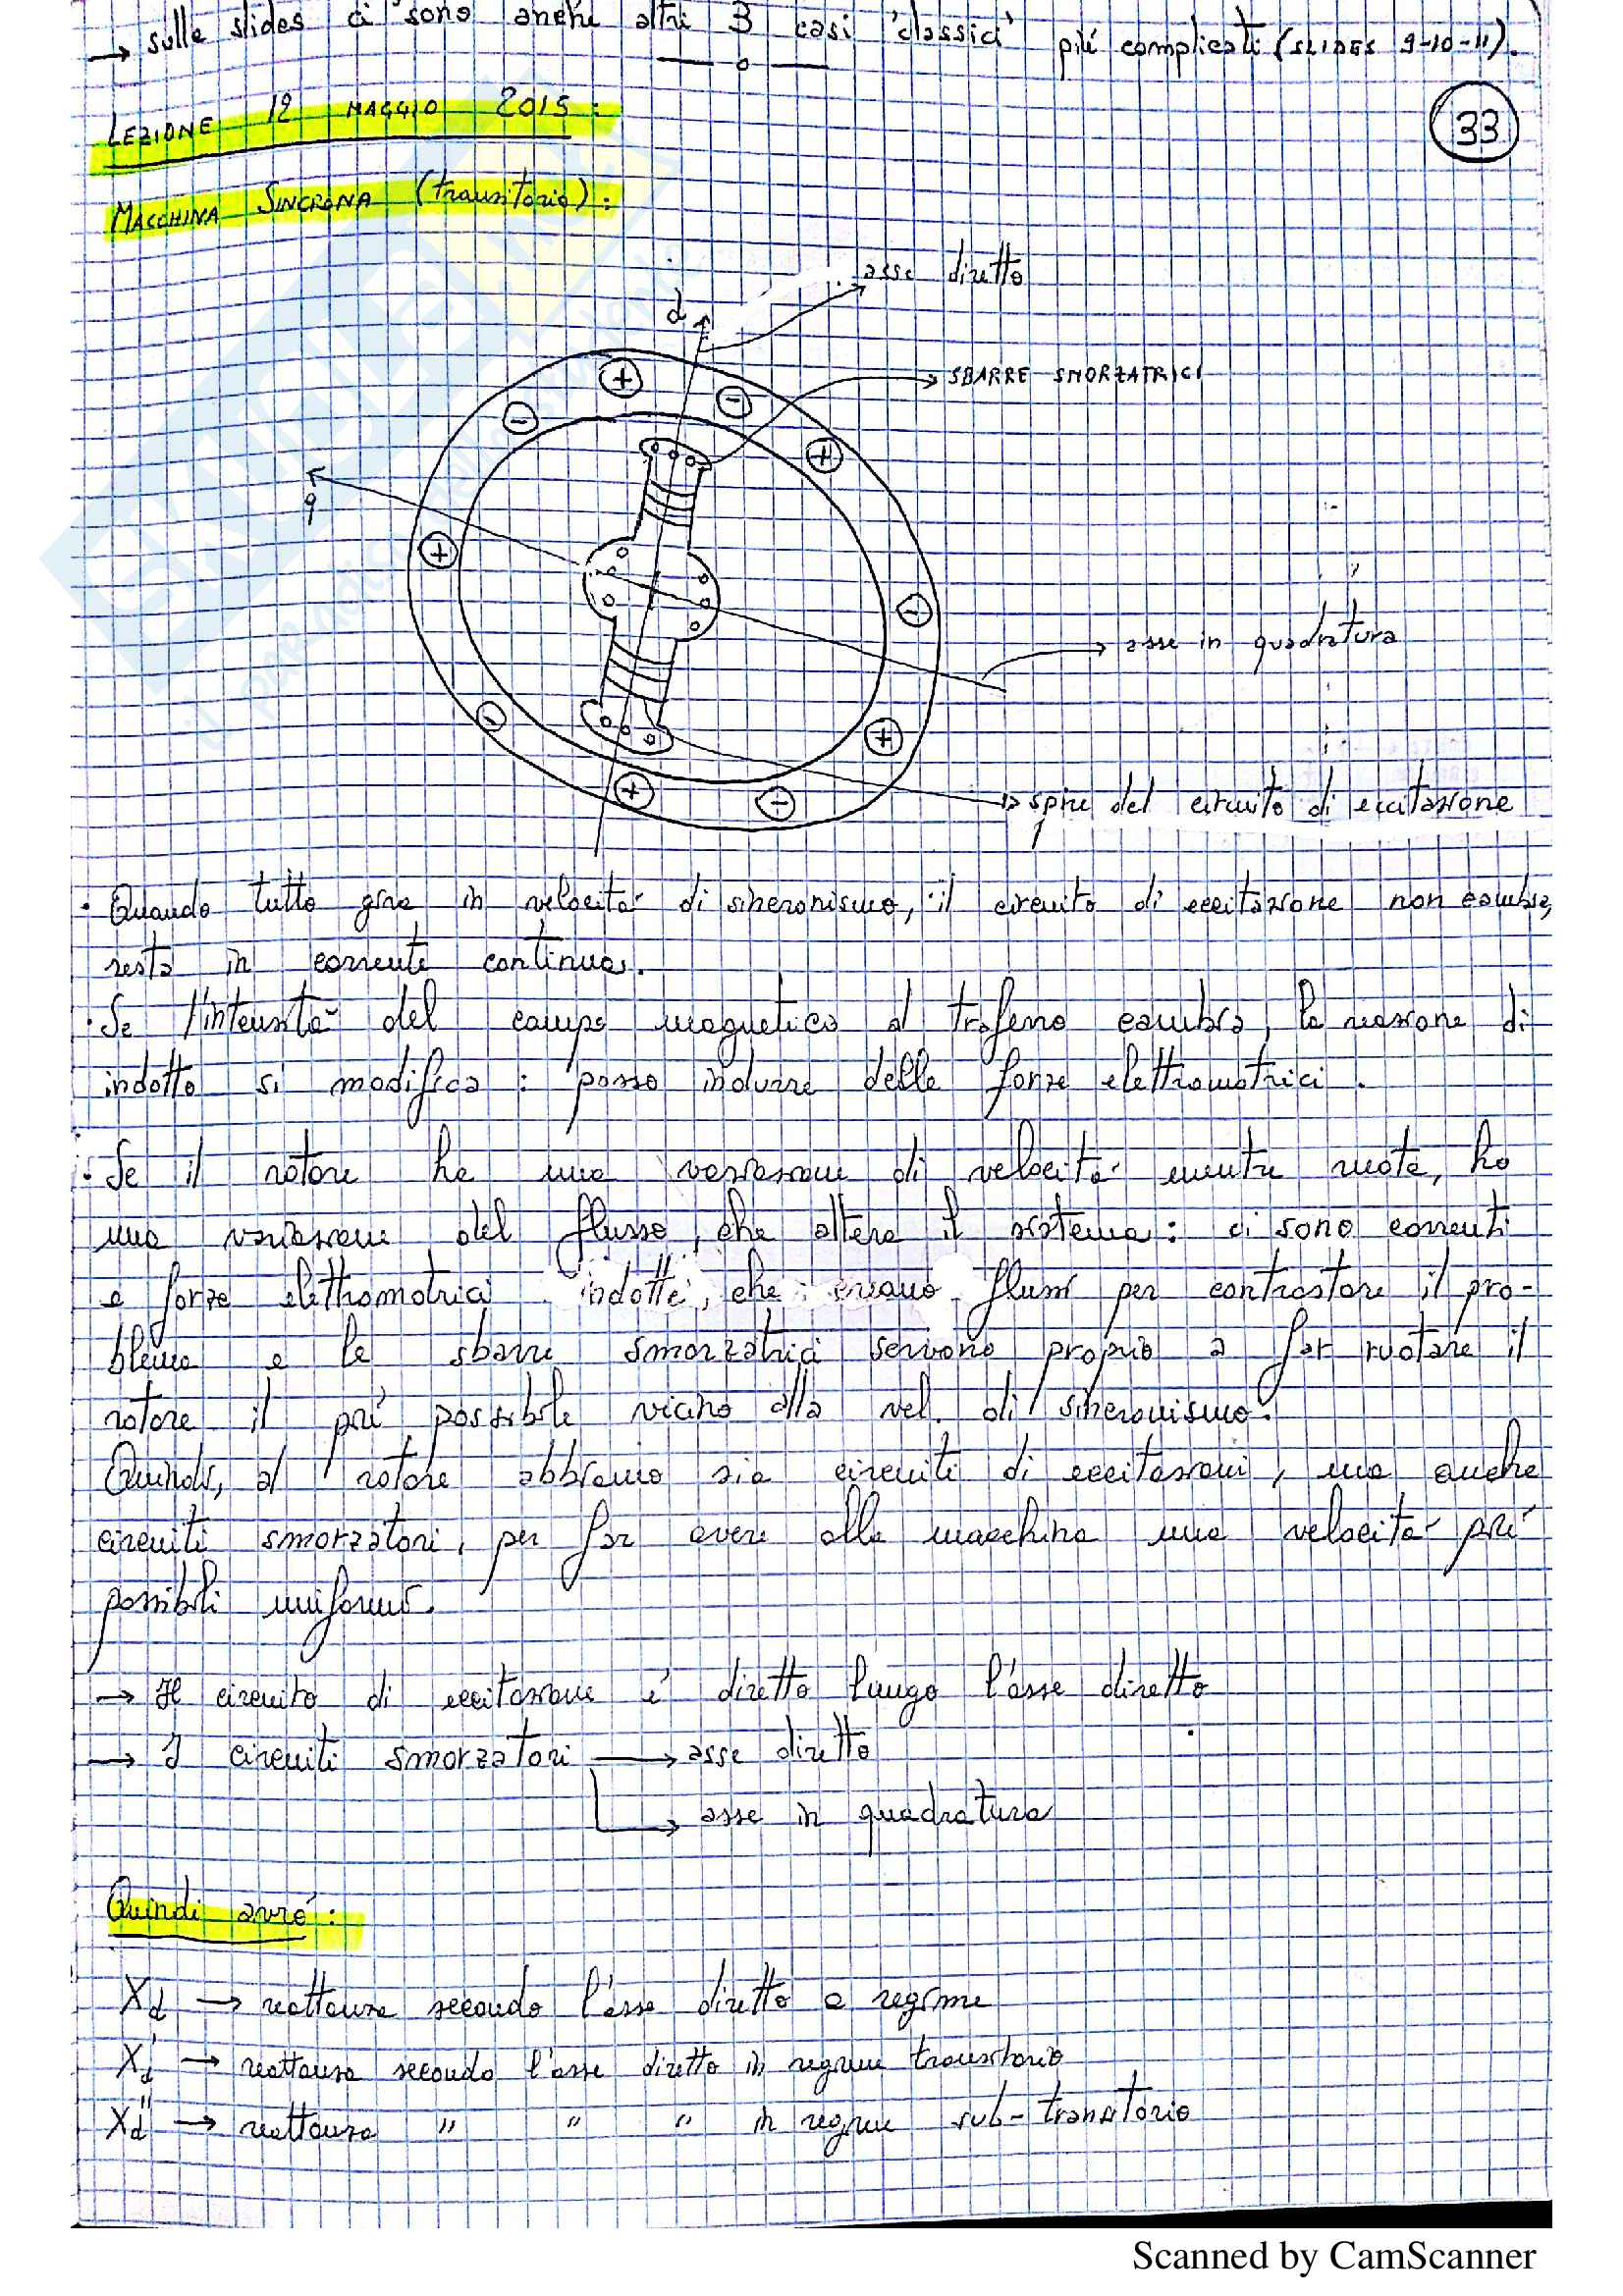 → sulle slides ci sono anche altri 3 casi 'classici' più complicati (SLIDES 9-10-11).
LEZIONE 12 MAGGIO 2015:
33
MACCHINA SINCRONA (transitorio):
asse diretto
d
SBARRE SMORZATRICI
q
asse in quadratura
spire del circuito di eccitazione
• Quando tutto gira in velocità di sincronismo, il circuito di eccitazione non cambia,
resta in corrente continua.
• Se l'intensità del campo magnetico al traferro cambia, la reazione di
indotto si modifica: posso indurre delle forze elettromotrici.
• Se il rotore ha una variazione di velocità mentre ruota, ho
una variazione del flusso, che altera il sistema: ci sono correnti
e forze elettromotrici indotte, che creano flussi per contrastare il pro-
blema e le sbarre smorzatrici servono proprio a far ruotare il
rotore il più possibile vicino alla vel. di sincronismo.
Quindi, al rotore abbiamo sia circuiti di eccitazioni, ma anche
circuiti smorzatori, per far avere alla macchina una velocità più
possibili uniforme.
→ Il circuito di eccitazione è diretto lungo l'asse diretto
→ I circuiti smorzatori → asse diretto
→ asse in quadratura
Quindi avrò:
Xd → reattanza secondo l'asse diretto a regime
Xd' → reattanza secondo l'asse diretto in regime transitorio
Xd'' → reattanza " " " in regime sub-transitorio
Scanned by CamScanner